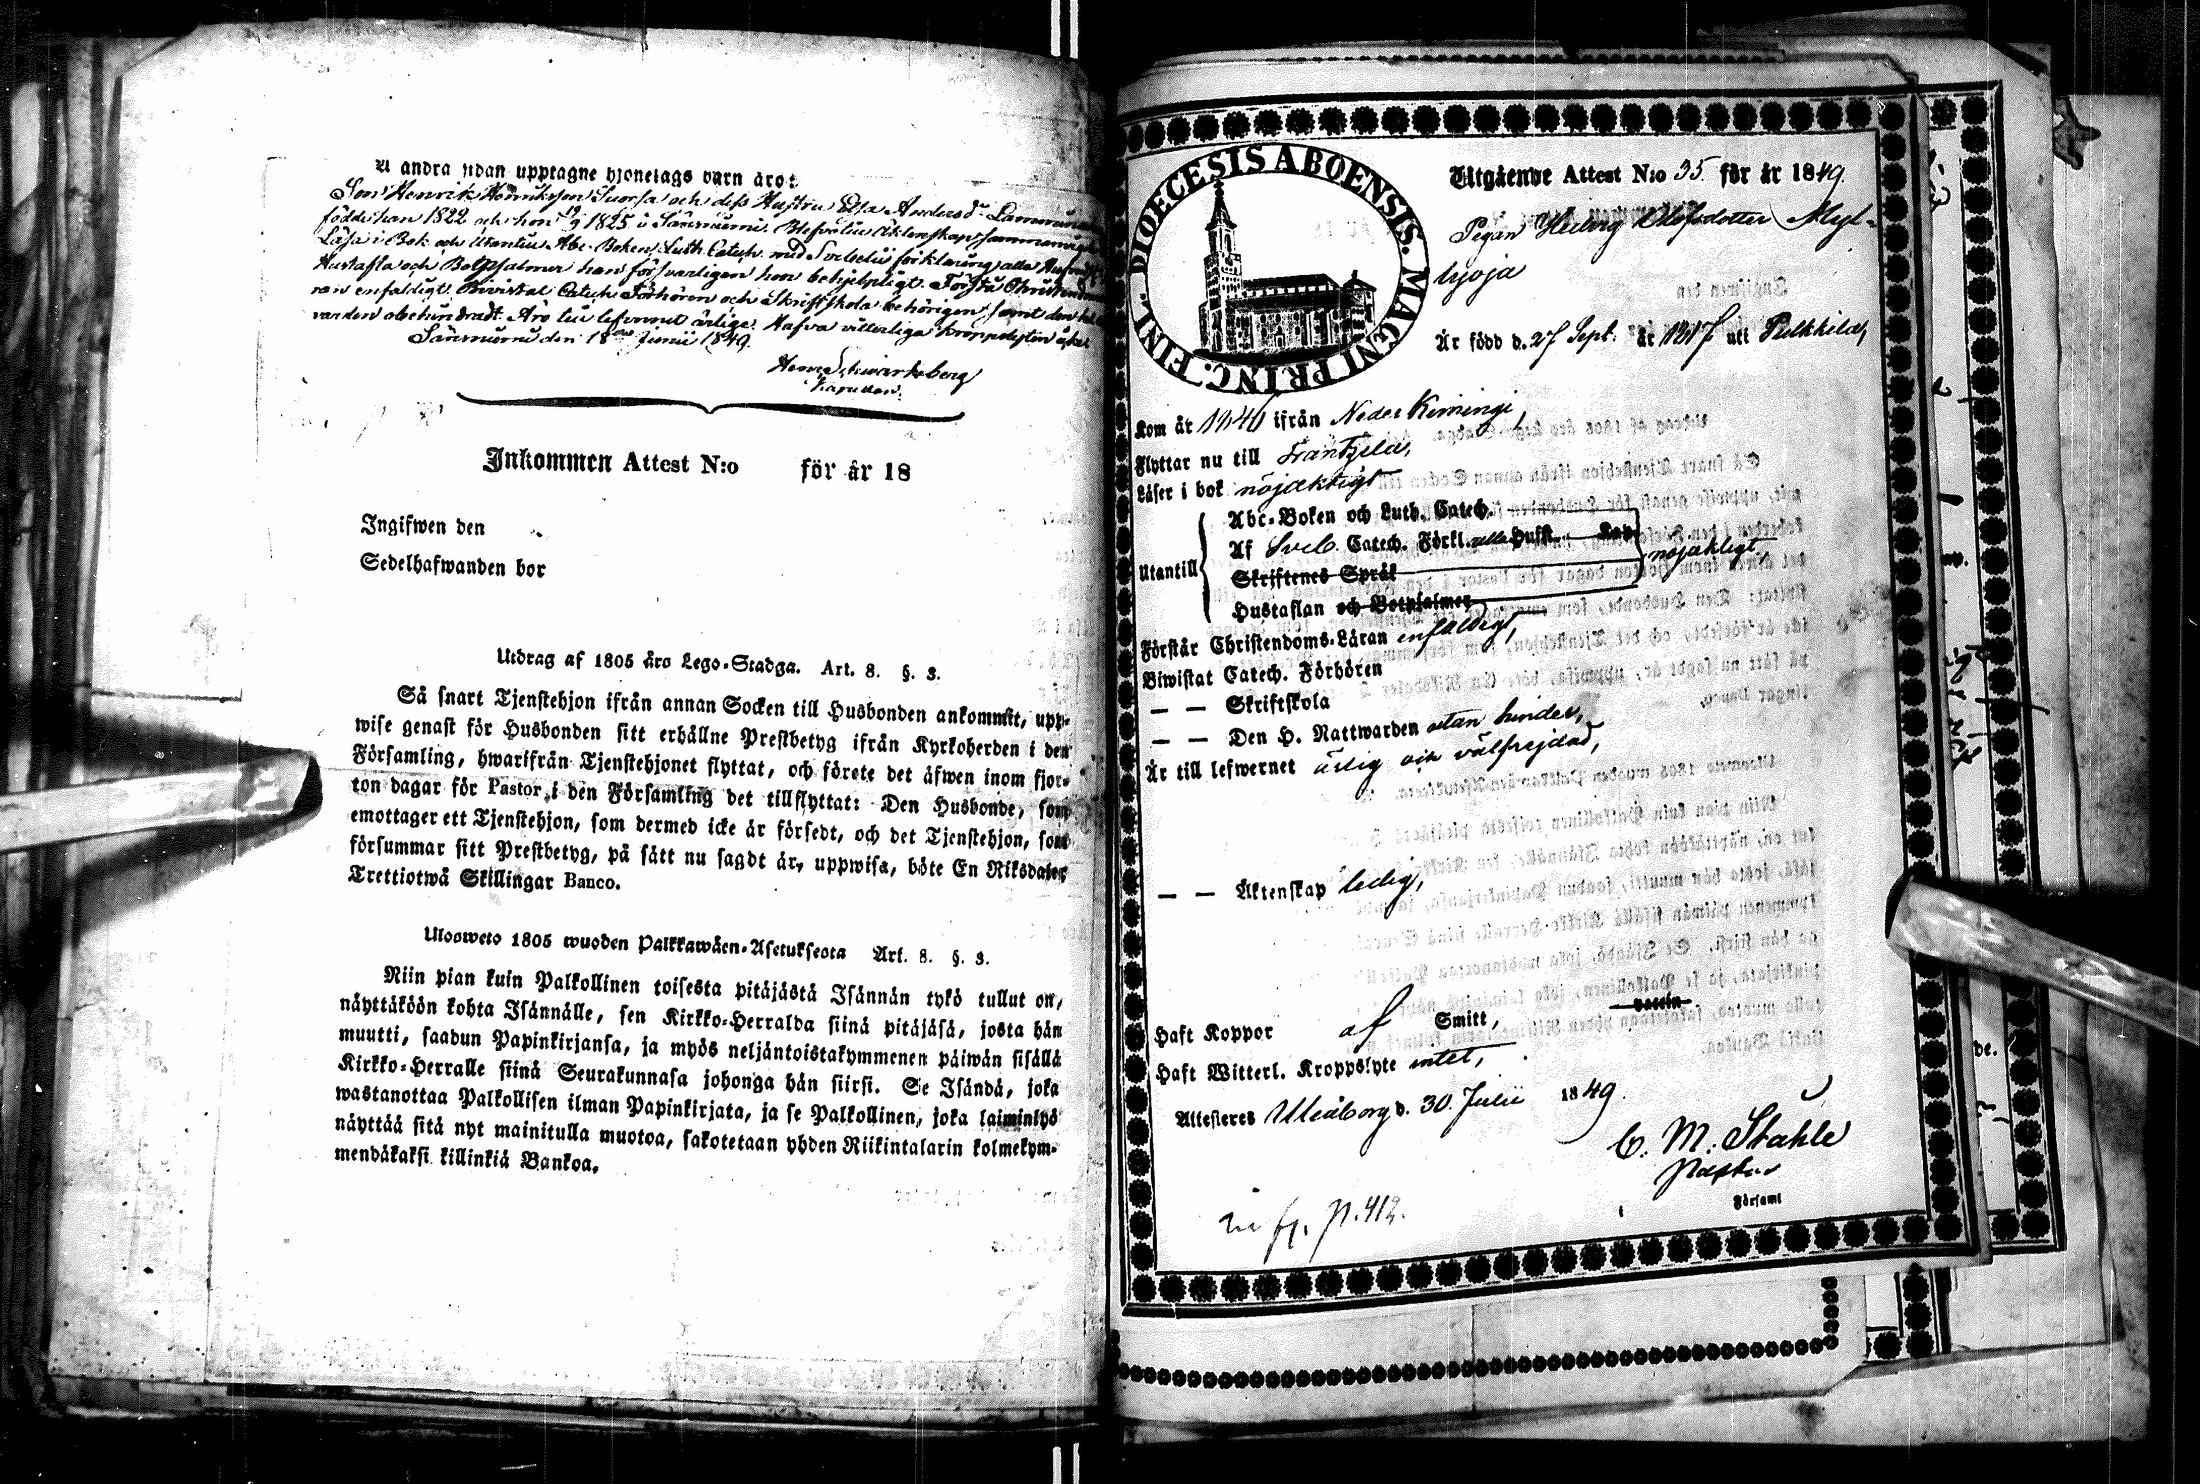 å andra sidan upptagne hjonelags barn äro:
Son Henrik Henriksson Suorsa och dess Hustru Elsa Andersdr Lammin
födde han 1822 och hon 19/9 1825 i Sänmumi. Äktenskap sammanvigde
Läsa i Bok och Utantill Abc-Boken, Luth. Catech. med Svebelii förklaring alla Hufvud
Hustafla och Botpsalmer han försvarligen hon behjelpligt. Förstå Christendom
ran enfaldigt. Bivistat Catech. Förhören och Skriftskola behörigen samt den h.
varden obehindradt. Äro till lefvernet ärlige. Hafva vitterliga kroppslyten
den 18de Junii 1849.
Henr. Schwartzberg
Inkommen Attest N:o för år 18
Ingifwen den
Sedelhafwanden bor
Utdrag af 1805 års Lego-Stadga. Art. 8. §. 3.
Så snart Tjenstehjon ifrån annan Socken till Husbonden ankommit, upp-
wise genast för Husbonden sitt erhållne Prestbetyg ifrån Kyrkoherden i den
Församling, hwarifrån Tjenstehjonet flyttat, och förete det äfwen inom fjor-
ton dagar för Pastor i den Församling det tillflyttat: Den Husbonde, som
emottager ett Tjenstehjon, som dermed icke är försedt, och det Tjenstehjon, som
försummar sitt Prestbetyg, på sätt nu sagdt är, uppwisa, böte En Riksdaler
Trettiotwå Skillingar Banco.
Ulosweto 1805 wuoden Palkkawäen-Asetuksesta Art. 8. §. 3.
Niin pian kuin Palkollinen toisesta pitäjästä Isännän tykö tullut on,
näyttäköön kohta Isännälle, sen Kirkko-Herralda siinä pitäjäsä, josta hän
muutti, saadun Papinkirjansa, ja myös neljäntoistakymmenen päiwän sisällä
Kirkko-Herralle siinä Seurakunnasa johonga hän siirsi. Se Isändä, joka
wastanottaa Palkollisen ilman Papinkirjata, ja se Palkollinen, joka laiminlyö
näyttää sitä nyt mainitulla muotoa, sakotetaan yhden Riikintalarin kolmekym-
mendäkaksi killinkiä Bankoa.
DIOECESIS ABOENSIS. MAGNI PRINC. FINL.
Utgående Attest N:o 35 för år 1849.
Pigan Hedvig Olofsdotter Myl-
lyoja
Är född d. 27 Sept. år 1817 uti Pulkkila,
Kom år 1846 ifrån Neder Kiiminge,
Flyttar nu till Frantsila,
Läser i bok nöjaktigt
Utantill
Abc-Boken och Luth. Catech.
Af Sveb. Catech. Förkl. alla Hufst. Kap
Skriftenes Språk
Hustaflan och Botpsalmer
nöjaktigt
Förstår Christendoms-Läran enfaldigt,
Biwistat Catech. Förhören
— — Skriftskola
— — Den H. Nattwarden utan hinder,
Är till lefwernet ärlig och välfrejdad,
— — Äktenskap ledig,
Haft Koppor af Smitt, vaccin
Haft Witterl. Kroppslyte intet,
Attesteres Uleåborg d. 30 Julii 1849.
C. M. Stahle
Församl
p. 412.